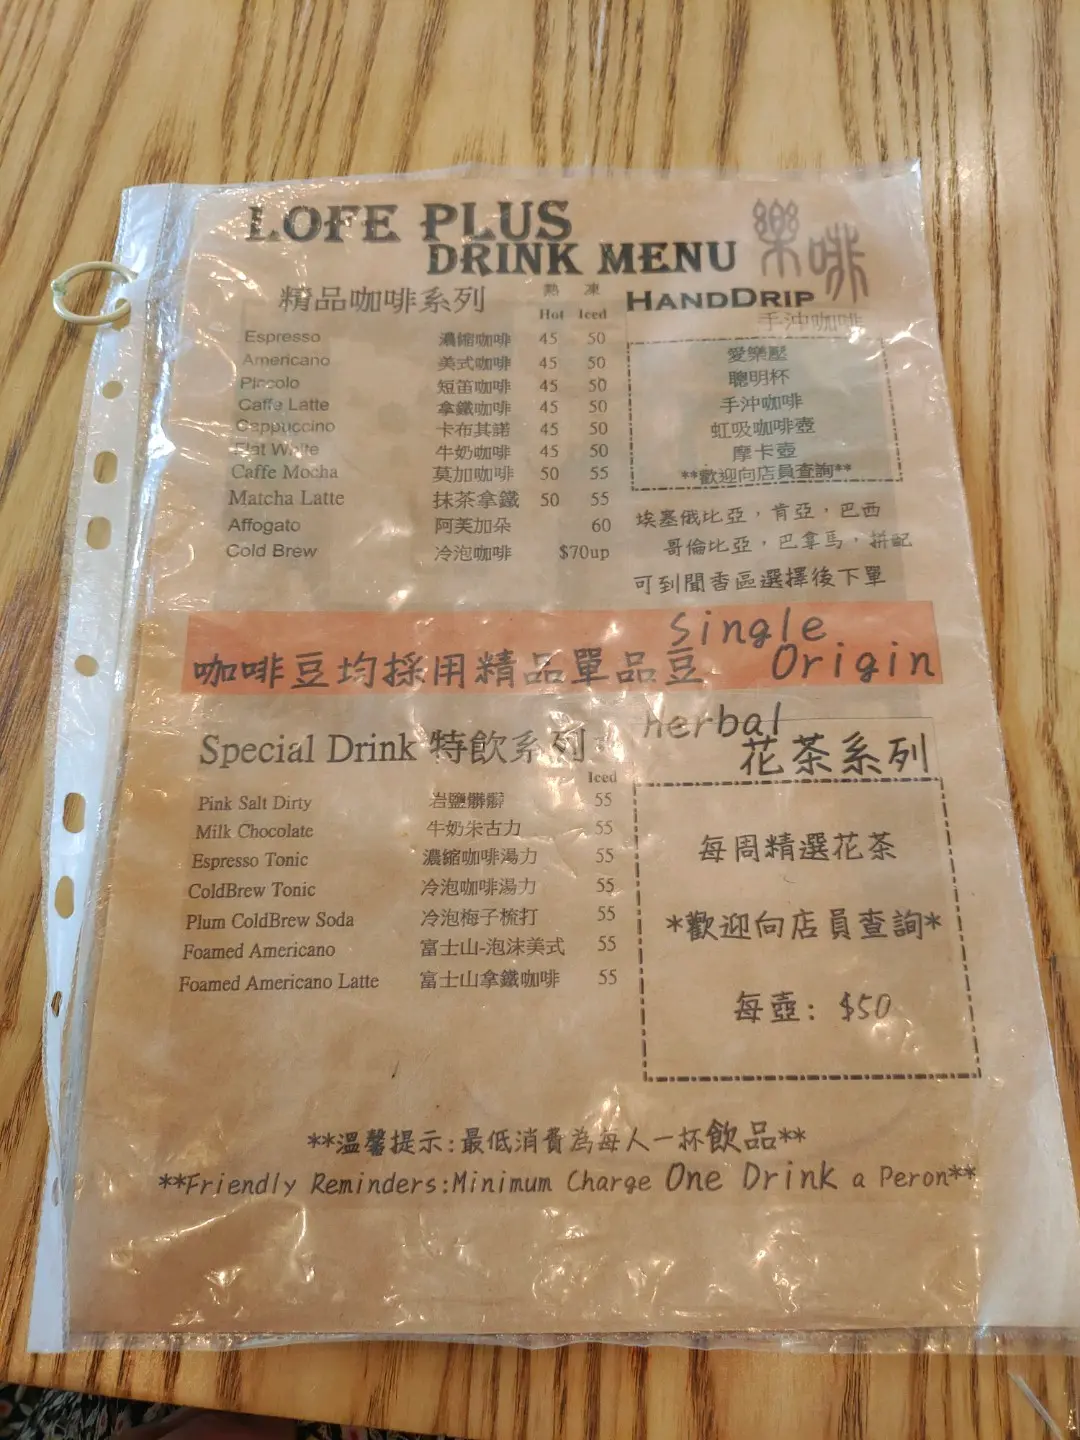 LOFE PLUS
DRINK MENU 樂啡
精品咖啡系列 熱 凍
Hot Iced
Espresso 濃縮咖啡 45 50
Americano 美式咖啡 45 50
Piccolo 短笛咖啡 45 50
Caffe Latte 拿鐵咖啡 45 50
Cappuccino 卡布其諾 45 50
Flat White 牛奶咖啡 45 50
Caffe Mocha 莫加咖啡 50 55
Matcha Latte 抹茶拿鐵 50 55
Affogato 阿芙加朵 60
Cold Brew 冷泡咖啡 $70up
HANDDRIP
手沖咖啡
愛樂壓
聰明杯
手沖咖啡
虹吸咖啡壺
摩卡壺
**歡迎向店員查詢**
埃塞俄比亞，肯亞，巴西
哥倫比亞，巴拿馬，拼配
可到聞香區選擇後下單
咖啡豆均採用精品單品豆 Single Origin
Special Drink 特飲系列
Iced
Pink Salt Dirty 岩鹽髒髒 55
Milk Chocolate 牛奶朱古力 55
Espresso Tonic 濃縮咖啡湯力 55
ColdBrew Tonic 冷泡咖啡湯力 55
Plum ColdBrew Soda 冷泡梅子梳打 55
Foamed Americano 富士山-泡沫美式 55
Foamed Americano Latte 富士山拿鐵咖啡 55
herbal
花茶系列
每周精選花茶
*歡迎向店員查詢*
每壺: $50
**溫馨提示:最低消費為每人一杯飲品**
**Friendly Reminders:Minimum Charge One Drink a Peron**